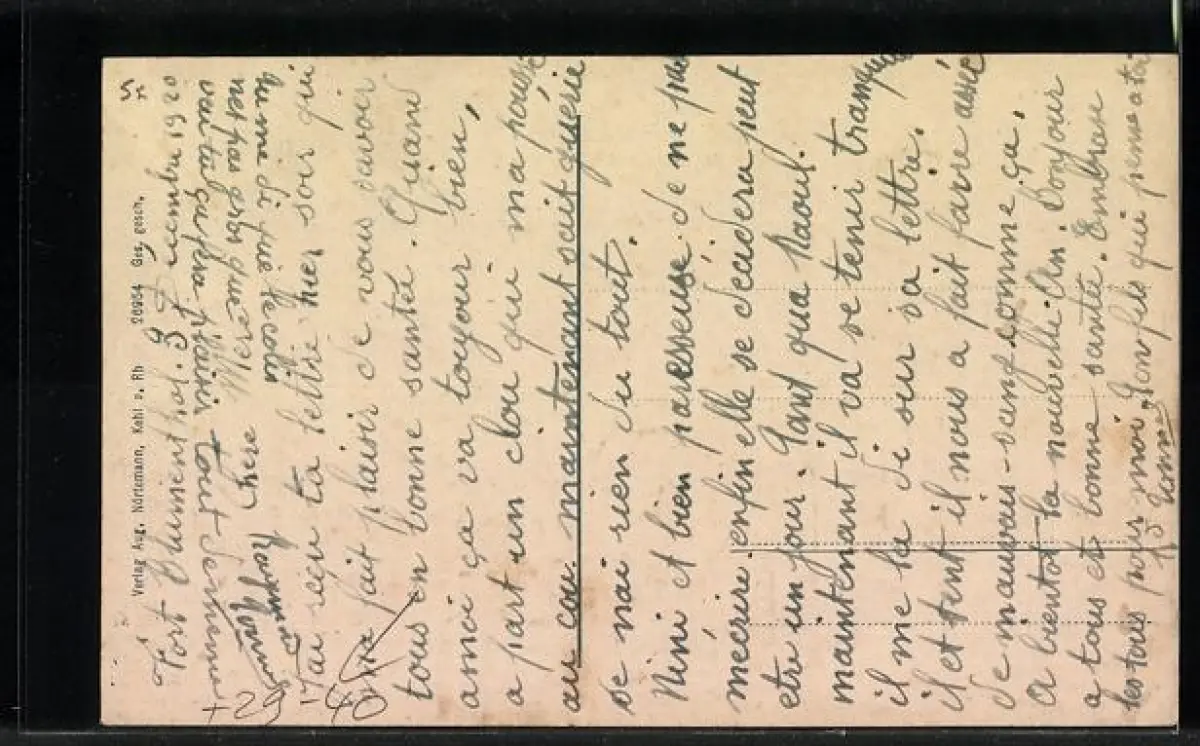 5x
Verlag Aug. Nürtemann, Kehl a. Rh 20954 Ges. gesch.
Fort Blumenthal 1920
vaut ta fera plaisir tout
n'est pas grd que
tu me di que le colis
Chère Mere
J'ai reçu ta lettre hier soir qui
fait plaisir de vous savoir
tous en bonne santée. Quand
amoi ça va toujour bien,
a part un clou qui ma poussé
au cou. maintenant sait guérie
se nai rien du tout.
Nini et bien paresseuse de ne pas
mécrire. enfin elle se décidera peut
etre un jour. Tant qua Raoul.
maintenant il va se tenir tranquil
il me la di sur sa lettre.
il et tent il nous a fait faire assé
de mauvais-sanf comme ça.
A bientot la nouvelle An. Bonjour
a tous et bonne santée. Embrase
les tous pour moi Ton fils qui pense a toi